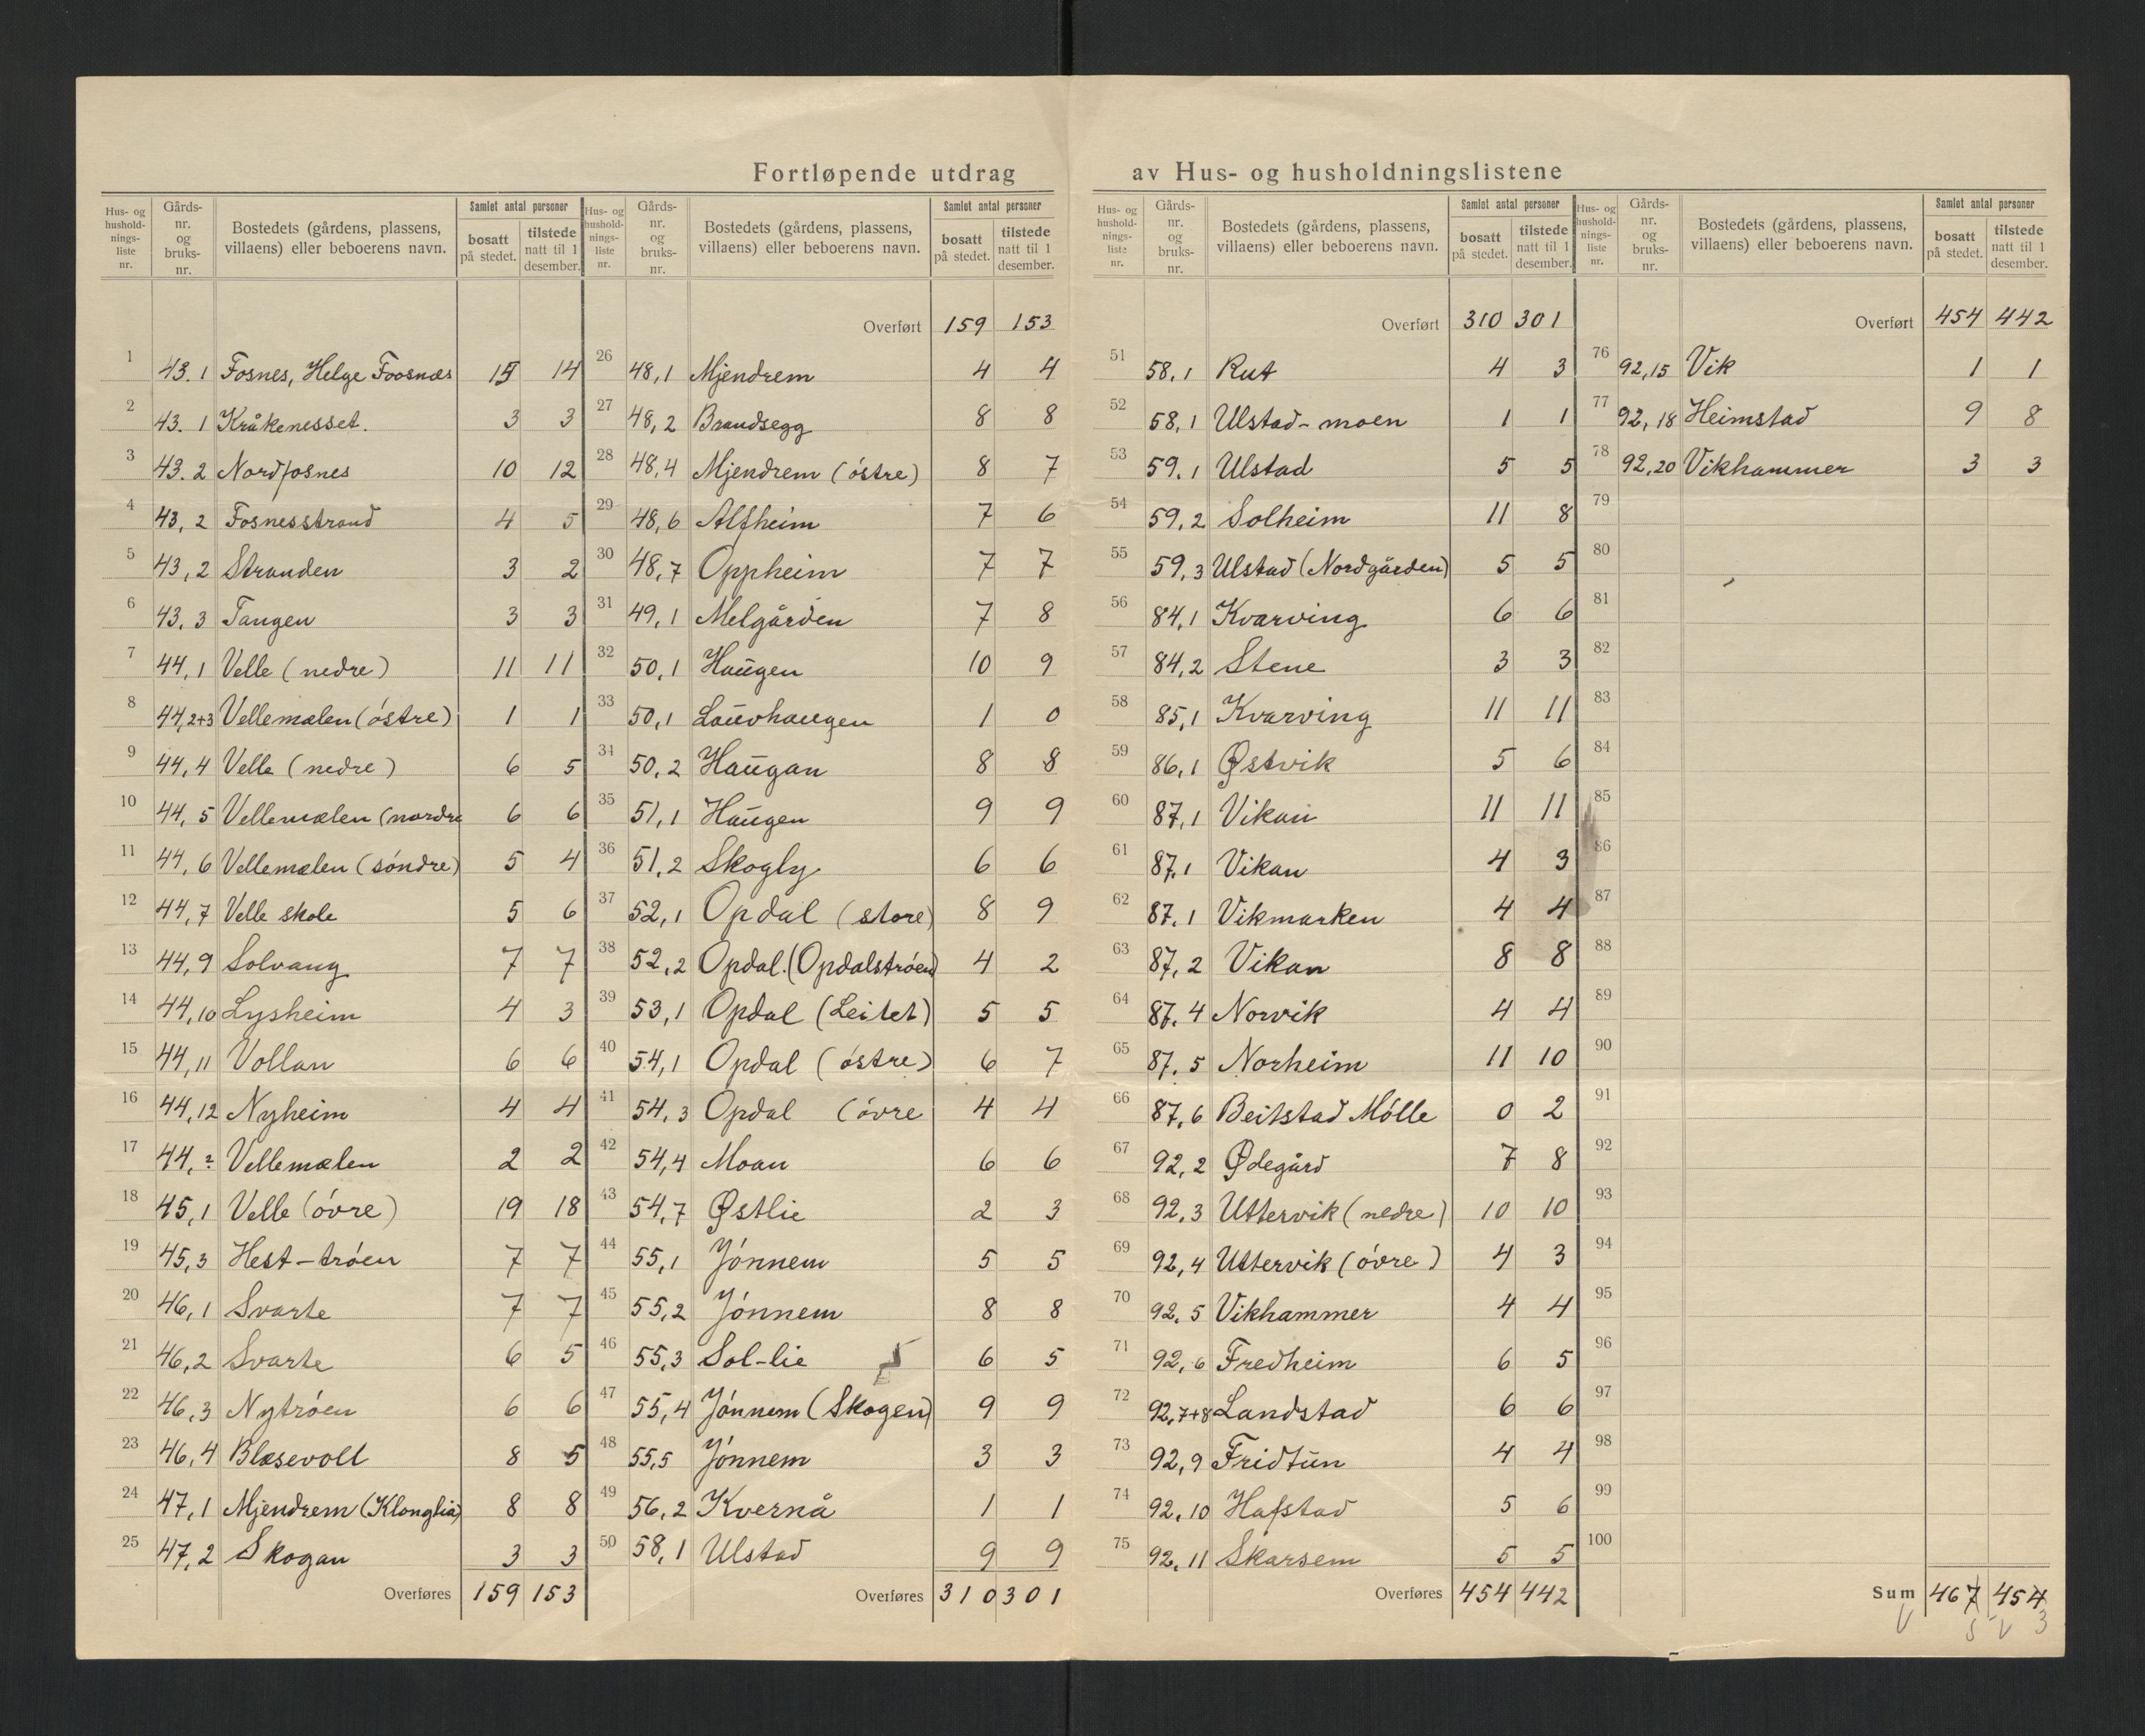 Fortløpende utdrag av Hus- og husholdningslistene
Hus- og hushold-nings-liste nr. Gårds-nr. og bruks-nr. Bostedets (gårdens, plassens, villaens) eller beboerens navn. Samlet antal personer bosatt på stedet. tilstede natt til 1 desember.
1 43.1 Fosnes, Helge Foosnæs 15 14
2 43.1 Kråkenesset. 3 3
3 43.2 Nordfosnes 10 12
4 43,2 Fosnesstrand 4 5
5 43,2 Stranden 3 2
6 43.3 Tangen 3 3
7 44,1 Velle (nedre) 11 11
8 44,2+3 Vellemælen (östre) 1 1
9 44,4 Velle (nedre) 6 5
10 44,5 Vellemælen (nordre 6 6
11 44,6 Vellemælen (söndre) 5 4
12 44,7 Velle skole 5 6
13 44,9 Solvang 7 7
14 44,10 Lysheim 4 3
15 44,11 Vollan 6 6
16 44,12 Nyheim 4 4
17 44,? Vellemælen 2 2
18 45,1 Velle (óvre) 19 18
19 45,3 Hest-tróen 7 7
20 46,1 Svarte 7 7
21 46,2 Svarte 6 5
22 46,3 Nytróen 6 6
23 46,4 Blæsevoll 8 5
24 47,1 Mjendrem (Klonglia) 8 8
25 47,2 Skogan 3 3
Overføres 159 153
Hus- og hushold-nings-liste nr. Gårds-nr. og bruks-nr. Bostedets (gårdens, plassens, villaens) eller beboerens navn. Samlet antal personer bosatt på stedet. tilstede natt til 1 desember.
Overført 159 153
26 48,1 Mjendrem 4 4
27 48,2 Brandsegg 8 8
28 48,4 Mjendrem (óstre) 8 7
29 48,6 Alfheim 7 6
30 48,7 Oppheim 7 7
31 49,1 Melgården 7 8
32 50,1 Haugen 10 9
33 50,1 Lauvhaugen 1 0
34 50,2 Haugan 8 8
35 51,1 Haugen 9 9
36 51,2 Skogly 6 6
37 52,1 Opdal (store) 8 9
38 52,2 Opdal.(Opdalstróen) 4 2
39 53,1 Opdal (Leitet) 5 5
40 54,1 Opdal (óstre) 6 7
41 54,3 Opdal (óvre 4 4
42 54,4 Moan 6 6
43 54,7 Østlie 2 3
44 55,1 Jónnem 5 5
45 55,2 Jónnem 8 8
46 55,3 Sol-lie 6 5
47 55,4 Jónnem (Skogen) 9 9
48 55,5 Jónnem 3 3
49 56,2 Kvernå 1 1
50 58,1 Ulstad 9 9
Overføres 310 301
Hus- og hushold-nings-liste nr. Gårds-nr. og bruks-nr. Bostedets (gårdens, plassens, villaens) eller beboerens navn. Samlet antal personer bosatt på stedet. tilstede natt til 1 desember.
Overført 310 301
51 58,1 Rut 4 3
52 58,1 Ulstad-moen 1 1
53 59.1 Ulstad 5 5
54 59,2 Solheim 11 8
55 59,3 Ulstad (Nordgården) 5 5
56 84,1 Kvarving 6 6
57 84,2 Stene 3 3
58 85,1 Kvarving 11 11
59 86,1 Østvik 5 6
60 87,1 Vikan 11 11
61 87,1 Vikan 4 3
62 87.1 Vikmarken 4 4
63 87,2 Vikan 8 8
64 87.4 Norvik 4 4
65 87.5 Norheim 11 10
66 87,6 Beitstad Mólle 0 2
67 92,2 Ødegård 7 8
68 92.3 Uttervik (nedre) 10 10
69 92,4 Uttervik (óvre) 4 3
70 92.5 Vikhammer 4 4
71 92,6 Fredheim 6 5
72 92,7+8 Landstad 6 6
73 92,9 Fridtun 4 4
74 92,10 Hafstad 5 6
75 92.11 Skarsem 5 5
Overføres 454 442
Hus- og hushold-nings-liste nr. Gårds-nr. og bruks-nr. Bostedets (gårdens, plassens, villaens) eller beboerens navn. Samlet antal personer bosatt på stedet. tilstede natt til 1 desember.
Overført 454 442
76 92,15 Vik 1 1
77 92,18 Heimstad 9 8
78 92,20 Vikhammer 3 3
79
80
81
82
83
84
85
86
87
88
89
90
91
92
93
94
95
96
97
98
99
100
Sum 467 454
5 3